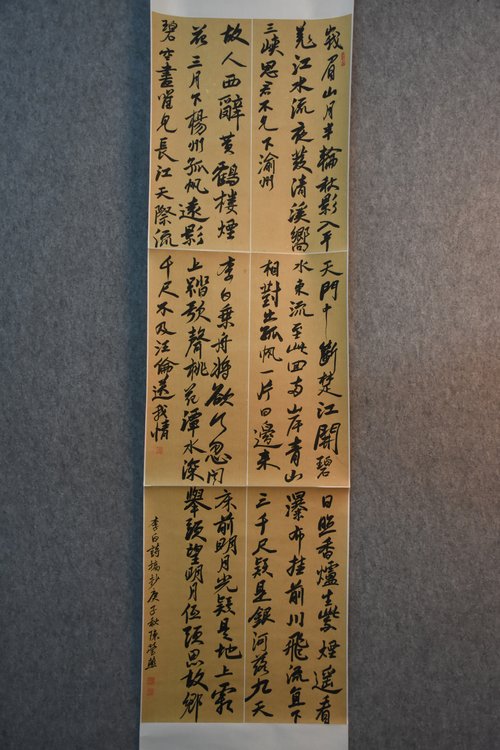 峩眉山月半輪秋影入平
羌江水流夜發清溪嚮
三峽思君不見下渝州
故人西辭黄鶴樓煙
花三月下楊州孤帆遠影
碧空盡唯見長江天際流
天門中斷楚江開碧
水東流至此回两岸青山
相對出孤帆一片日邊来
李白乘舟将欲行忽闻
上踏歌聲桃花潭水深
千尺不及汪倫送我情
日照香爐生紫煙遥看
瀑布挂前川飛流直下
三千尺疑是銀河落九天
床前明月光疑是地上霜
舉頭望明月低頭思故鄉
李白詩摘抄庚子秋陳